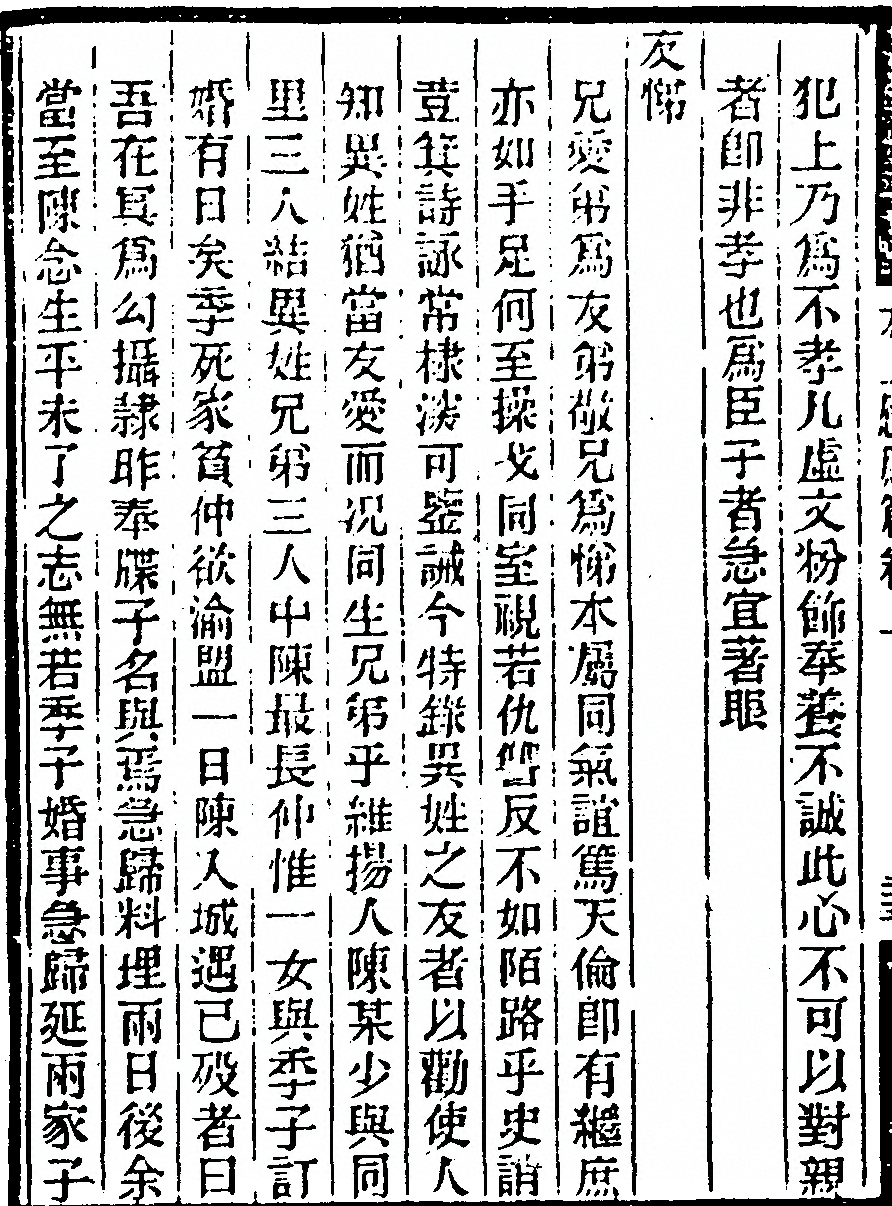 犯上乃爲不孝凡虛文粉飾奉養不誠此心不可以對親
者卽非孝也爲臣子者急宜著眼
友悌
兄愛弟爲友弟敬兄爲悌本屬同氣誼篤天倫卽有繼庶
亦如手足何至操戈同室視若仇讐反不如陌路乎史誚
荳箕詩詠常棣淡可鑒誡今特錄異姓之友者以勸使人
知異姓猶當友愛而况同生兄弟乎維揚人陳某少與同
里三人結異姓兄弟三人中陳最長仲惟一女與季子訂
婚有日矣季死家貧仲欲渝盟一日陳入城遇已殁者曰
吾在冥爲勾攝隸昨奉牒子名與焉急歸料理兩日後余
當至陳念生平未了之志無若季子婚事急歸延兩家子